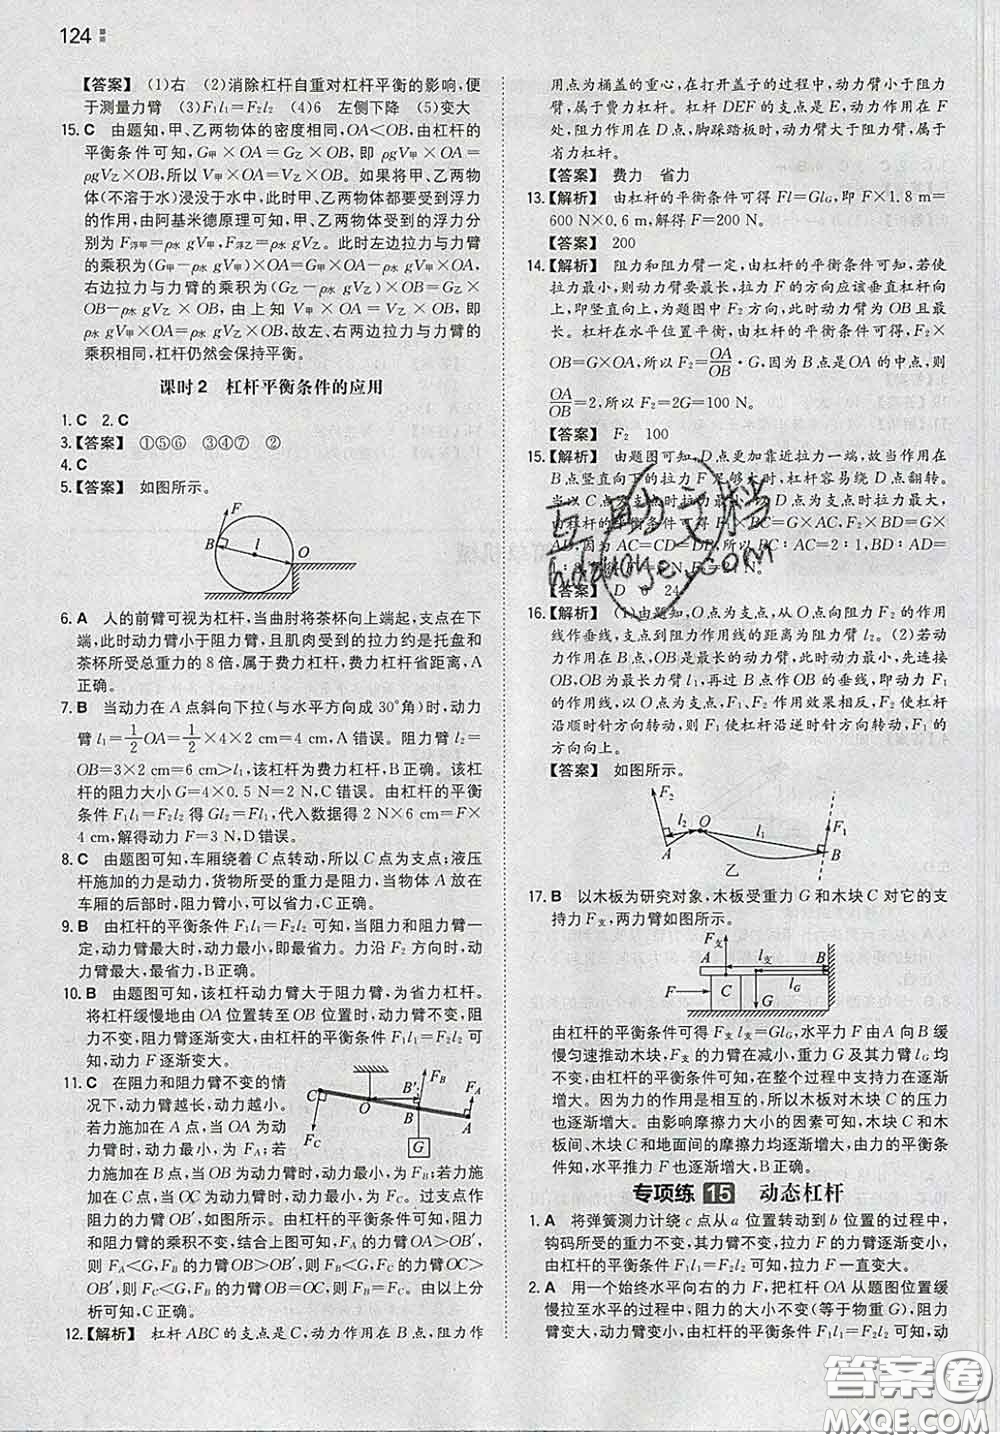 124
【答案】 (1)右 (2)消除杠杆自重对杠杆平衡的影响,便
于测量力臂 (3)F₁l₁=F₂l₂ (4)6 左侧下降 (5)变大
15. C 由题知,甲、乙两物体的密度相同,OA<OB,由杠杆的
平衡条件可知,G甲×OA=G乙×OB,即 ρgV甲×OA=
ρgV乙×OB,所以 V甲×OA=V乙×OB。如果将甲、乙两物
体(不溶于水)浸没于水中,此时甲、乙两物体受到的浮力
作用,由阿基米德原理可知,甲、乙两物体受到的浮力分
别为 F浮甲=ρ水gV甲,F浮乙=ρ水gV乙。此时左边拉力与力臂
的乘积为(G甲-ρ水gV甲)×OA=G甲×OA-ρ水gV甲×OA,
右边拉力与力臂的乘积为(G乙-ρ水gV乙)×OB=G乙×
OB-ρ水gV乙×OB,由上知 V甲×OA=V乙×OB,即
ρ水gV甲×OA=ρ水gV乙×OB,故左、右两边拉力与力臂的
乘积相同,杠杆仍然会保持平衡。
课时2 杠杆平衡条件的应用
1. C 2. C
3.【答案】 ①⑤⑥ ③④⑦ ②
4. C
5.【答案】 如图所示。
F
B
l
O
6. A 人的前臂可视为杠杆,当曲肘将茶杯向上端起,支点在下
端,此时动力臂小于阻力臂,且肌肉受到的拉力约是托盘和
茶杯所受总重力的 8 倍,属于费力杠杆,费力杠杆省距离,A
正确。
7. B 当动力在 A 点斜向下拉(与水平方向成 30°角)时,动力
臂 l₁=1/2 OA=1/2×4×2 cm=4 cm,A 错误。阻力臂 l₂=
OB=3×2 cm=6 cm>l₁,该杠杆为费力杠杆,B 正确。杠
杆的阻力大小 G=4×0.5 N=2 N,C 错误。由杠杆的平衡
条件 F₁l₁=F₂l₂ 得 Gl₂=Fl₁,代入数据得 2 N×6 cm=F×
4 cm,解得动力 F=3 N,D 错误。
8. C 由题图可知,车厢绕着 C 点转动,所以 C 点为支点;液压
杆施加的力是动力,货物所受的重力是阻力,当物体 A 放在
车厢的后部时,阻力臂小,可以省力,C 正确。
9. B 由杠杆的平衡条件 F₁l₁=F₂l₂ 可知,当阻力和阻力臂一
定,动力臂最大时,动力最小,即最省力。力沿 F₂ 方向时,动
力臂最大,最省力,B 正确。
10. B 由题图可知,该杠杆动力臂大于阻力臂,为省力杠杆。
将杠杆缓慢地由 OA 位置转至 OB 位置时,动力臂不变,阻
力不变,阻力臂逐渐变大。由杠杆的平衡条件 F₁l₁=F₂l₂ 可
知,动力 F 逐渐变大。
11. C 在阻力和阻力臂不变的情
况下,动力臂越长,动力越小。
若力施加在 A 点,当 OA 为动
力臂时,动力最小,为 FA;若力
C
O
B′
FB
FA
B
A
FC
G
施加在 B 点,当 OB 为动力臂时,动力最小,为 FB;若力施
加在 C 点,当 OC 为动力臂时,动力最小,为 FC。过支点作
阻力的力臂 OB′,如图所示。由杠杆的平衡条件可知,力与
力臂的乘积不变,结合上图可知,FA 的力臂 OA>OB′,
所以 FA<G,FB 的力臂 OB>OB′,所以 FB<G,FC 的力臂 OC>
OB′,FC<G,FB 的力臂 OB=OC,所以 FB=FC。由以上分
析可知,C 正确。
12.【解析】 杠杆 ABC 的支点是 C,动力作用在 B 点,阻力作
用点为桶盖的重心,在打开盖子的过程中,动力臂小于阻力
臂,属于费力杠杆。杠杆 DEF 的支点是 E,动力作用在 F
处,阻力作用在 D 点,脚踩踏板时,动力臂大于阻力臂,属于
省力杠杆。
【答案】 费力 省力
13.【解析】 由杠杆的平衡条件可得 Fl=GlG,即 F×1.8 m=
600 N×0.6 m,解得 F=200 N。
【答案】 200
14.【解析】 阻力和阻力臂一定,由杠杆的平衡条件可知,若使
拉力最小,则动力臂要最长,拉力 F 的方向应该垂直杠杆向
上,即竖直向上,为题图中 F₂ 方向,此时动力臂为 OB 且最
长。杠杆在水平位置平衡,由杠杆的平衡条件可得,F₂×
OB=G×OA,所以 F₂=OA/OB·G,因为 B 点是 OA 的中点,则
OA/OB=2,所以 F₂=2G=100 N。
【答案】 F₂ 100
15.【解析】 由题图可知,D 点更加靠近拉力一端,故当作用在
B 点竖直向下的拉力 F 足够大时,杠杆容易绕 D 点翻转。
当以 C 点为支点时拉力最小,以 D 点为支点时拉力最大,
由杠杆的平衡条件可得,F×BC=G×AC,F×BD=G×
AD。因为 AC=CD=DB,所以 BC:AC=2:1,BD:AD=
【答案】 D 6 24
16.【解析】 (1)由题知,O 点为支点,从 O 点向阻力 F₂ 的作用
线作垂线,支点到阻力作用线的距离为阻力臂 l₂。(2)若动
力作用在 B 点,OB 是最长的动力臂,此时动力最小,先连接
OB,OB 为最长力臂 l₁,再过 B 点作 OB 的垂线,即动力 F₁
的作用线,以 O 点为支点,F₂、F₁ 作用效果相反,F₂ 使杠杆
沿顺时针方向转动,则 F₁ 使杠杆沿逆时针方向转动,F₁ 的
方向向上。
【答案】 如图所示。
F₂
l₂
O
l₁
F₁
A
B
乙
17. B 以木板为研究对象,木板受重力 G 和木块 C 对它的支
持力 F支,两力臂如图所示。
F支
A
l支
B
lG
F
C
G
由杠杆的平衡条件可得 F支l支=GlG,水平力 F 由 A 向 B 缓
慢匀速推动木块,F支 的力臂在减小,重力 G 及其力臂 lG 均
不变,由杠杆的平衡条件可知,在整个过程中支持力在逐渐
增大。因为力的作用是相互的,所以木板对木块 C 的压力
也逐渐增大。由影响摩擦力大小的因素可知,木块 C 和木
板间、木块 C 和地面间的摩擦力均逐渐增大,由力的平衡条
件知,水平推力 F 也逐渐增大,B 正确。
专项练 15 动态杠杆
1. A 将弹簧测力计绕 c 点从 a 位置转动到 b 位置的过程中,
钩码所受的重力不变,其力臂不变,拉力 F 的力臂逐渐变小,
由杠杆的平衡条件 F₁l₁=F₂l₂ 可知,拉力 F 一直变大。
2. A 用一个始终水平向右的力 F,把杠杆 OA 从题图位置缓
慢拉至水平的过程中,阻力的大小不变(等于物重 G),阻力
臂变大,动力臂变小,由杠杆的平衡条件 F₁l₁=F₂l₂ 可知,动
互助文档
hdzuoye.com
答案圈
MXQE.COM